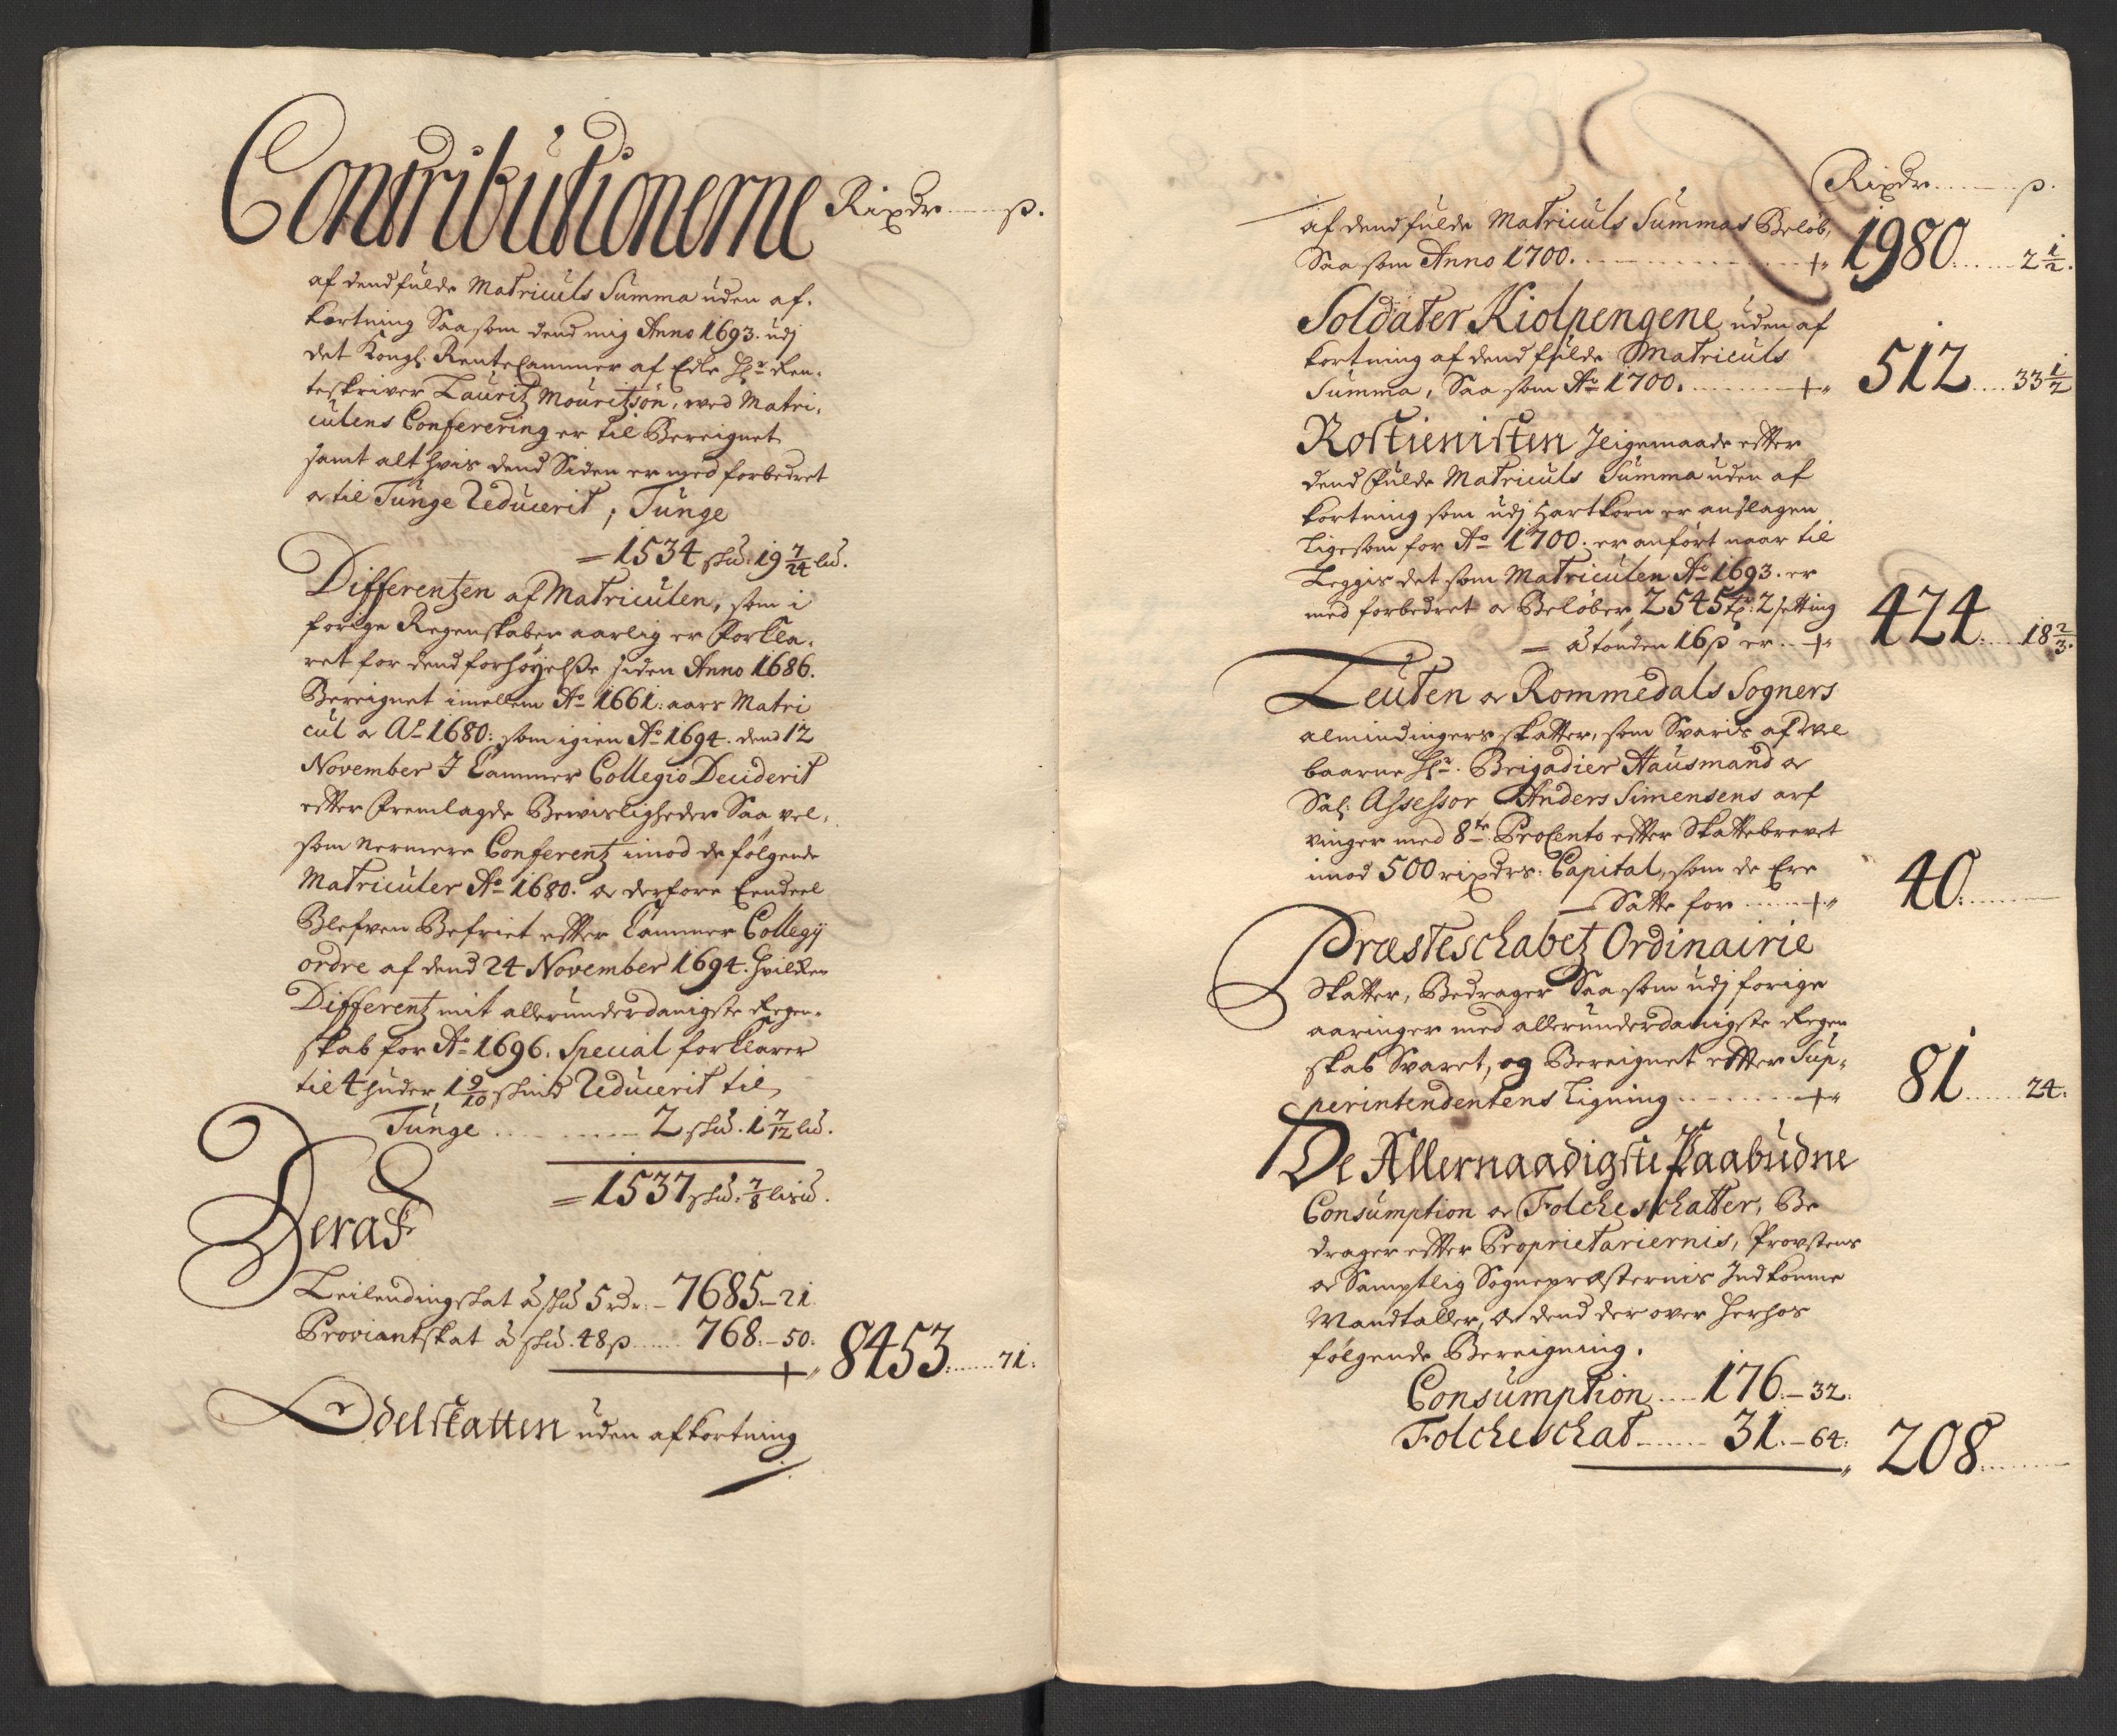 Contributionerne Rixdr ß.
af dend fulde Matriculs Summa uden af-
kortning Saasom dend mig Anno 1693. udj
det Kongl: RenteCammer af Edle Hr Ren-
teskriver Lauritz Mouritzøn, wed Matri-
culens Conferering er til Bereignet
samt alt hvis dend Siden er med forbedret
og til Tunge Reducerit, Tunge
= 1534 skud. 19 7/24 lu.
Differentzen af Matriculen, som i
forige Regenskaber aarlig er forkla-
ret for dend forhøyelsse siden Anno 1686.
Bereignet imellem Ao 1661: aars Matri
cul og Ao 1680: som igien Ao 1694. dend 12
November I Cammer Collegio Deciderit
effter fremlagde Bewisligheder Saa vel-
som Nermere Conferentz imod de følgende
Matriculer Ao 1680. og derfore Eendeel
Blefven Befriet effter Cammer Collegij
ordre af dend 24 November 1694. hvilken
Differentz mit allerunderdanigste Regen-
skab for Ao 1696. Special forklarer
til 4 huder 1 9/10 skind Reducerit til
Tunge 2 skud. 1 7/12 lu.
= 1537 skud. 7/8 lisu.
Deraf
Leilendingskat â skud 5 rdr: – 7685 – 21
Proviantskat â skud. 48 ß 768: – 50:
8453 71:
Odelskatten uden afkortning
Rixdr ß.
af dend fulde Matriculs Summas Beløb,
Saa som Anno 1700. 1980 2 1/2.
Soldater Kiolpengene uden af
kortning af dend fulde Matriculs
Summa, Saa som Ao 1700. 512 33 1/2
Rostienisten Jligemaade effter
dend fulde Matriculs Summa uden af
kortning som udj Hartkorn er anslagen
Ligesom for Ao 1700. er anført naar til
Leggis det som Matriculen Ao 1693. er
med forbedret og Beløber 2545 Tr: 2 setting
= â tønden 16 ß er 424 18 2/3.
Leuten og Rommedals Sogners
almindingers skatter, som Svaris af vel
baarne Hr. Brigadier Hausmand og
Sal: Assessor Anders Simensens arf
vinger med 8te ProCento effter Skattebrevet
imod 500 rixdrs: Capital, som de Ere
Satte for 40:
Præsteschabetz Ordinairie
Skatter, Bedrager Saa som udj forige
aaringer med allerunderdanigste Regen
skab Svaret, og Bereignet effter Sup-
perintendentens Ligning 81 24:
De Allernaadigste Paabudne
Consumption og Folcheschatter, Be
drager effter Proprietariernis, Provstens
og Samptlig Sognepræsternis Indkomne
Mandtaller, og dend der over herhos
følgende Bereigning.
Consumption 176 – 32:
Folcheschat 31: – 64: 208